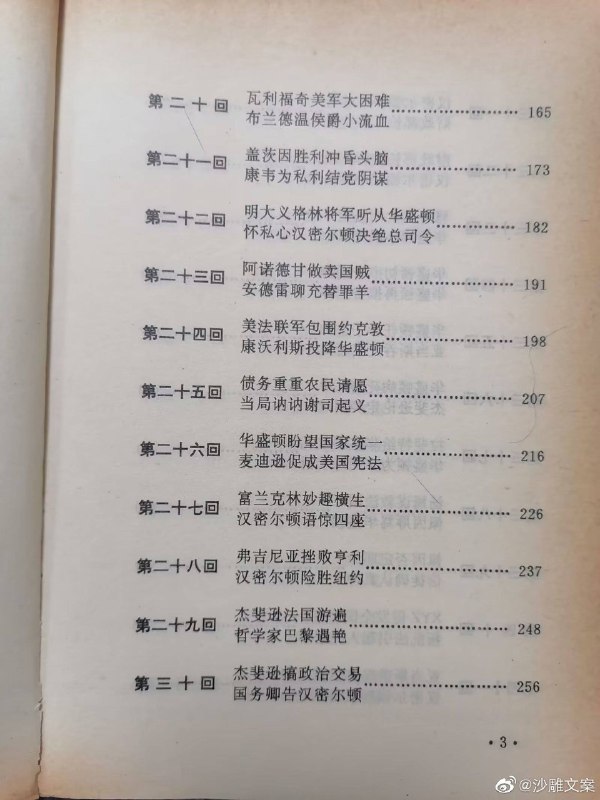 第二十回 瓦利福奇美军大困难
布兰德温侯爵小流血 165
第二十一回 盖茨因胜利冲昏头脑
康韦为私利结党阴谋 173
第二十二回 明大义格林将军听从华盛顿
怀私心汉密尔顿决绝总司令 182
第二十三回 阿诺德甘做卖国贼
安德雷聊充替罪羊 191
第二十四回 美法联军包围约克敦
康沃利斯投降华盛顿 198
第二十五回 债务重重农民请愿
当局讷讷谢司起义 207
第二十六回 华盛顿盼望国家统一
麦迪逊促成美国宪法 216
第二十七回 富兰克林妙趣横生
汉密尔顿语惊四座 226
第二十八回 弗吉尼亚挫败亨利
汉密尔顿险胜纽约 237
第二十九回 杰斐逊法国游遍
哲学家巴黎遇艳 248
第三十回 杰斐逊搞政治交易
国务卿告汉密尔顿 256
·3·
@沙雕文案